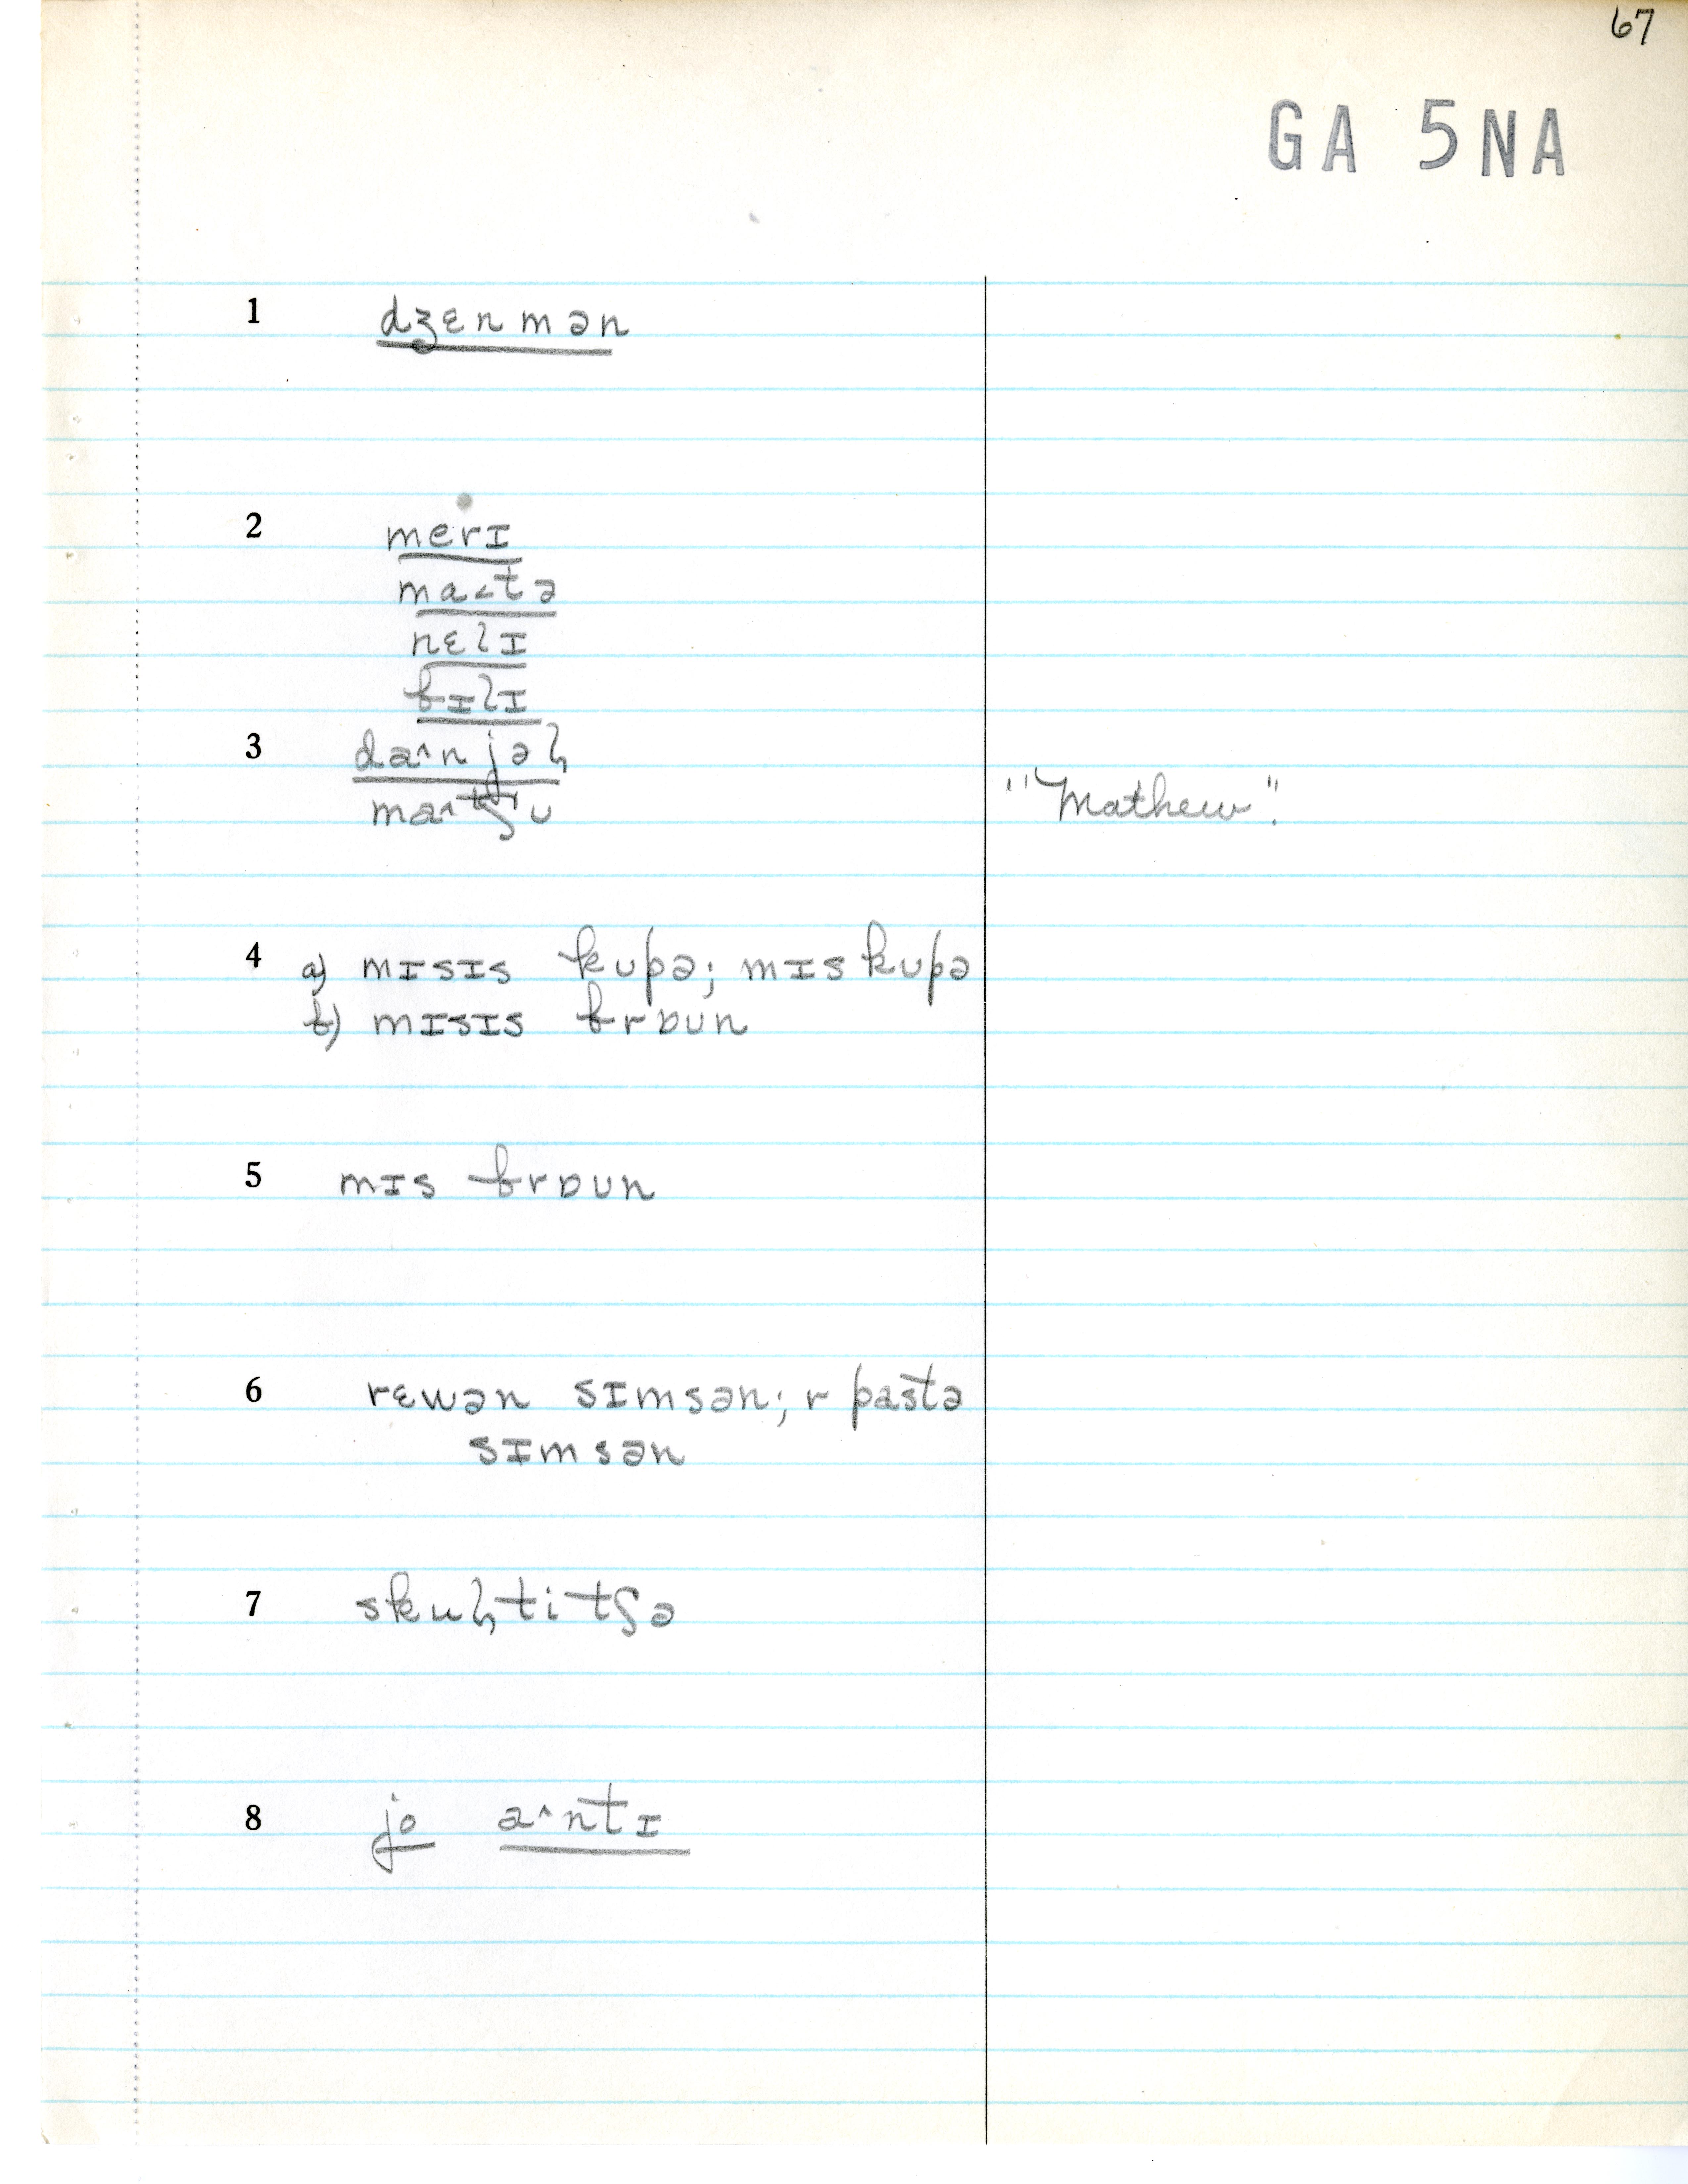 67
GA 5NA
1 dʒɛnmən
2 merɪ
ma˂tə
nɛlɪ
bɪlɪ
3 da˄njəl̡
ma˄tʃu "Mathew".
4 a) mɪsɪs kupə; mɪs kupə
b) mɪsɪs brɒun
5 mɪs brɒun
6 rɛwən sɪmsən; r pastə
sɪmsən
7 skul̡titʃə
8 jo a˄ntɪ